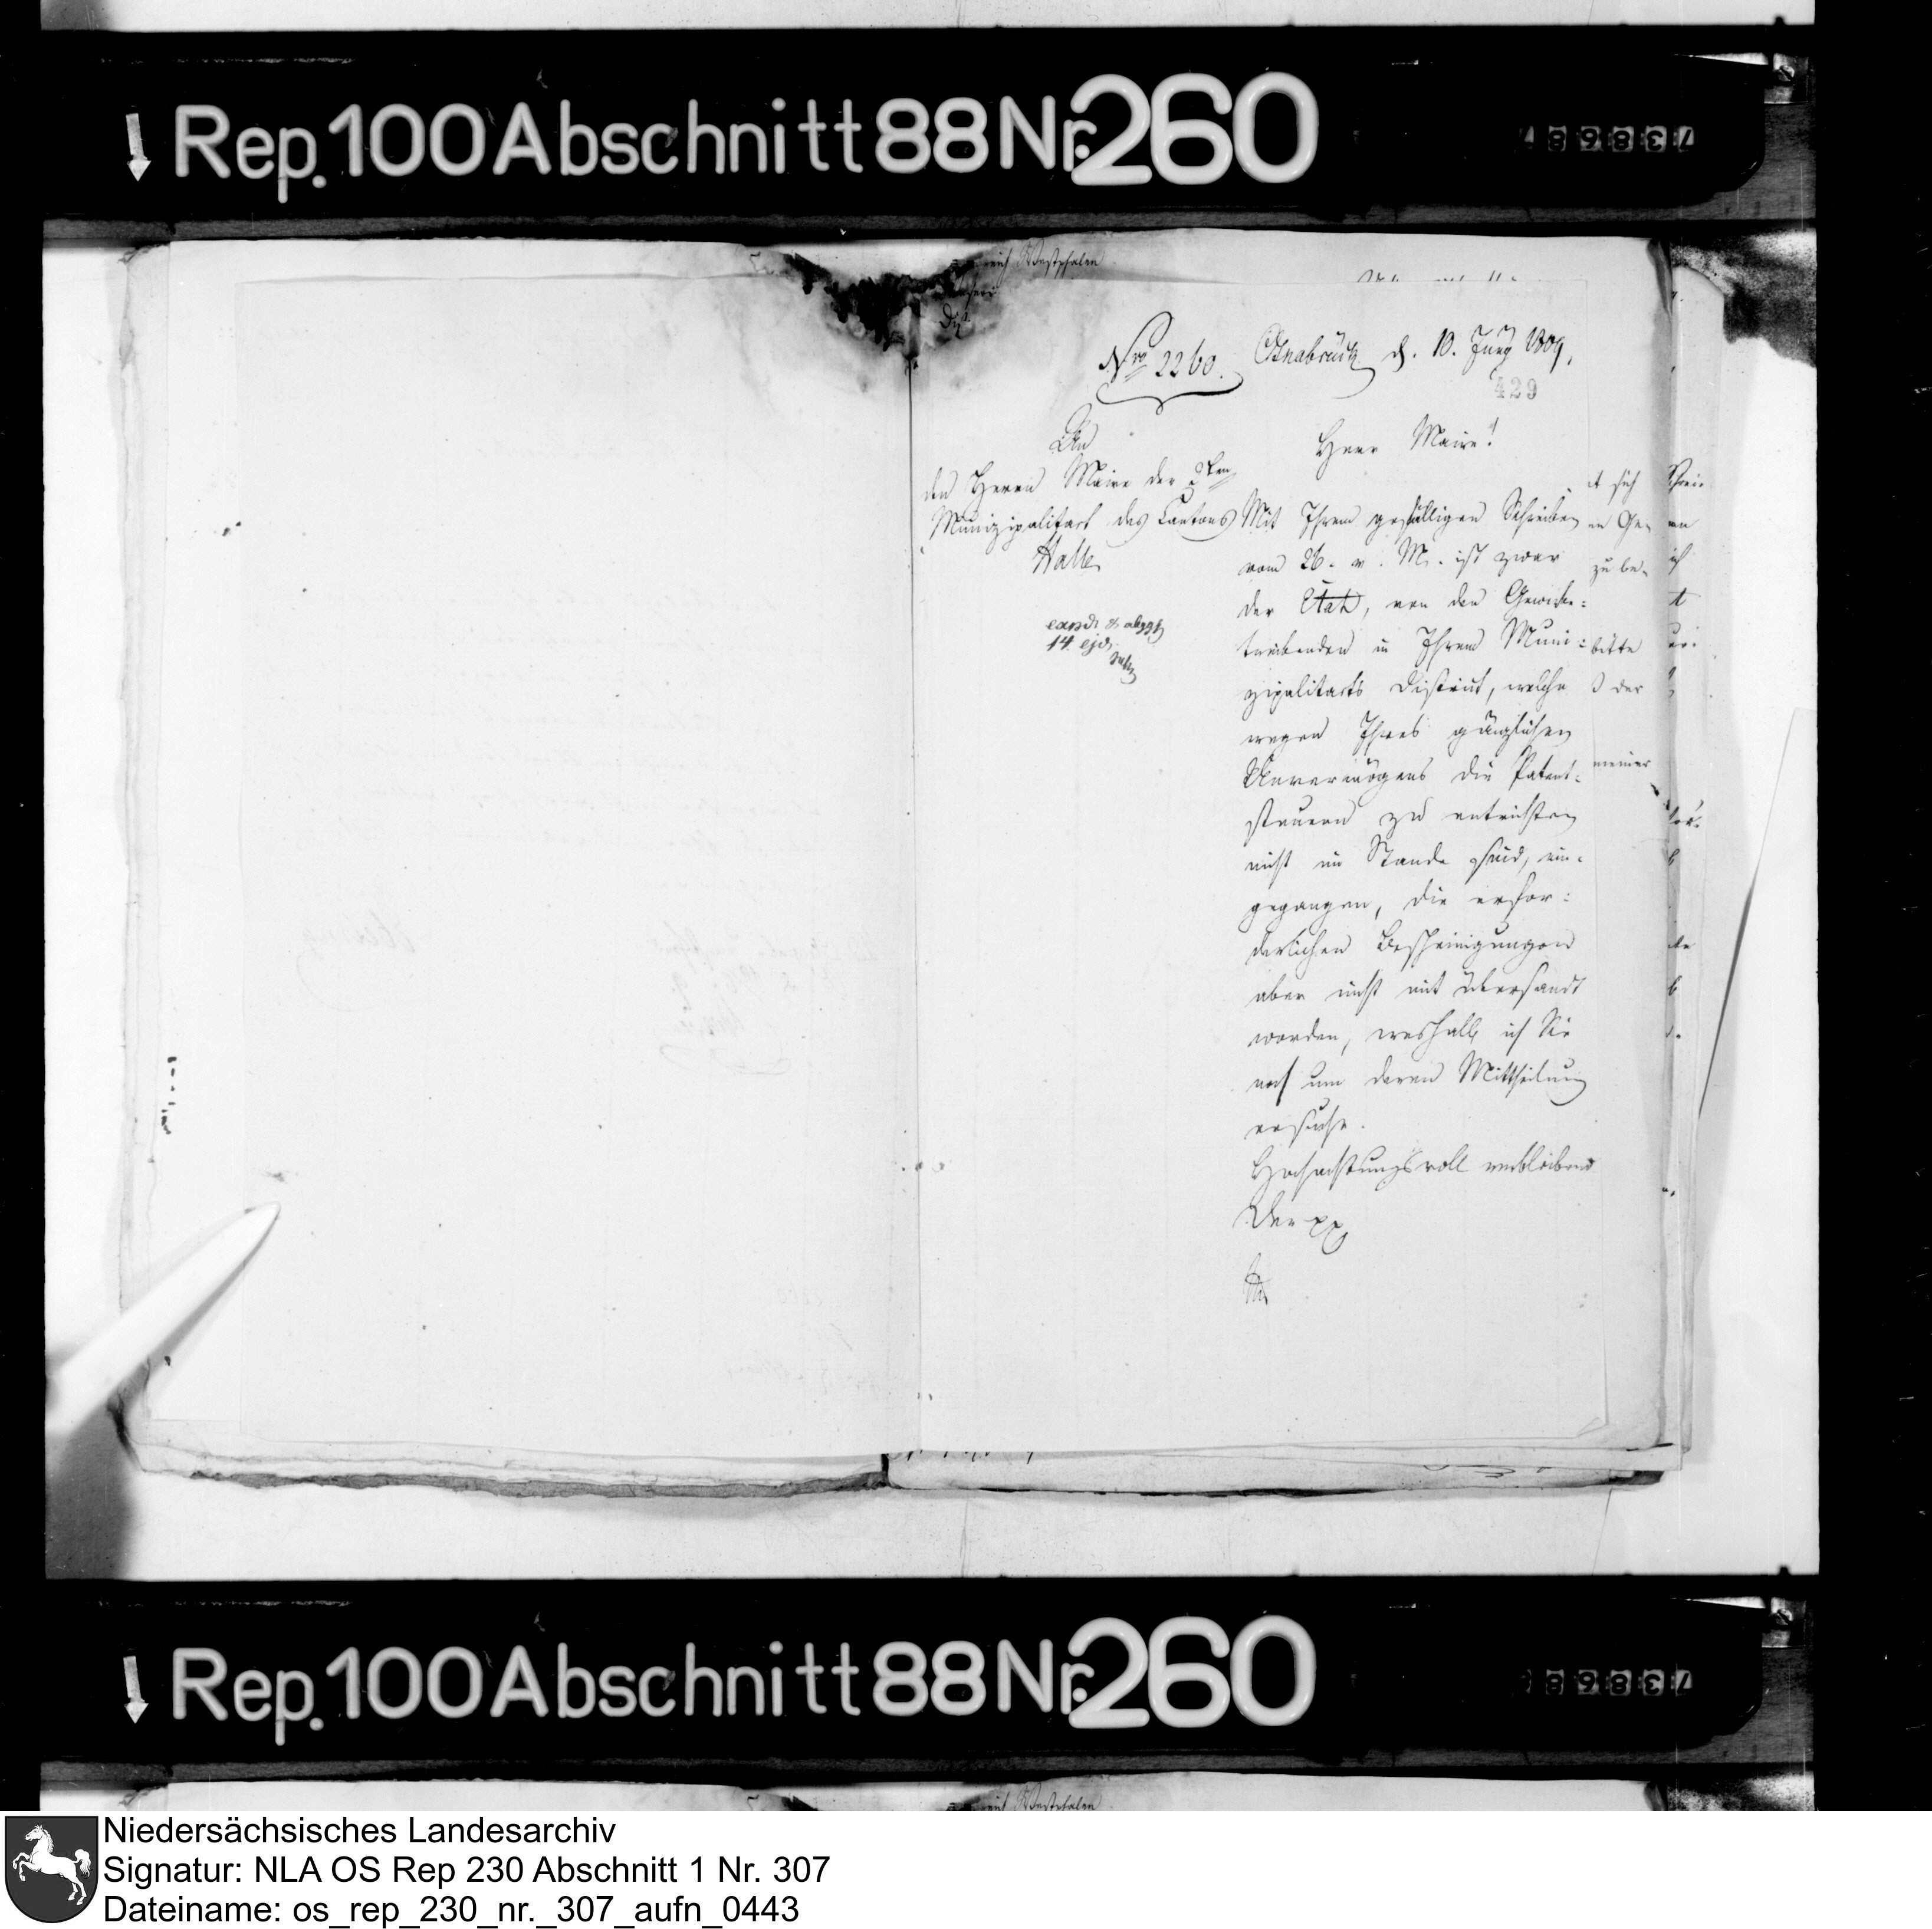 Rep. 100 Abschnitt 88 Nr. 260
73868
reich Westphalen
Nro 2260. Osnabrück d. 10. Juny 1809.
429
An
den Herrn Maire der 2ten
Munizipalitaet des Cantons
Halle
exped. & abgg
14 ejd.
Herr Maire!
Mit Ihrem gefälligen Schreiben
vom 26. v. M. ist zwar
der Etat, von den Gewerbe=
treibenden in Ihrem Muni=
zipalitaets District, welche
wegen Ihres gänzlichen
Unvermögens die Patent=
steuern zu entrichten
nicht im Stande sind, ein=
gegangen, die erfor=
derlichen Bescheinigungen
aber nicht mit übersandt
worden, weshalb ich Sie
noch um deren Mittheilung
ersuche.
Hochachtungsvoll verbleibend
Der
t sich
en Ge-
zu be-
bitte
der
meiner
Rep. 100 Abschnitt 88 Nr. 260
7386
reich Westphalen
Niedersächsisches Landesarchiv
Signatur: NLA OS Rep 230 Abschnitt 1 Nr. 307
Dateiname: os_rep_230_nr._307_aufn_0443